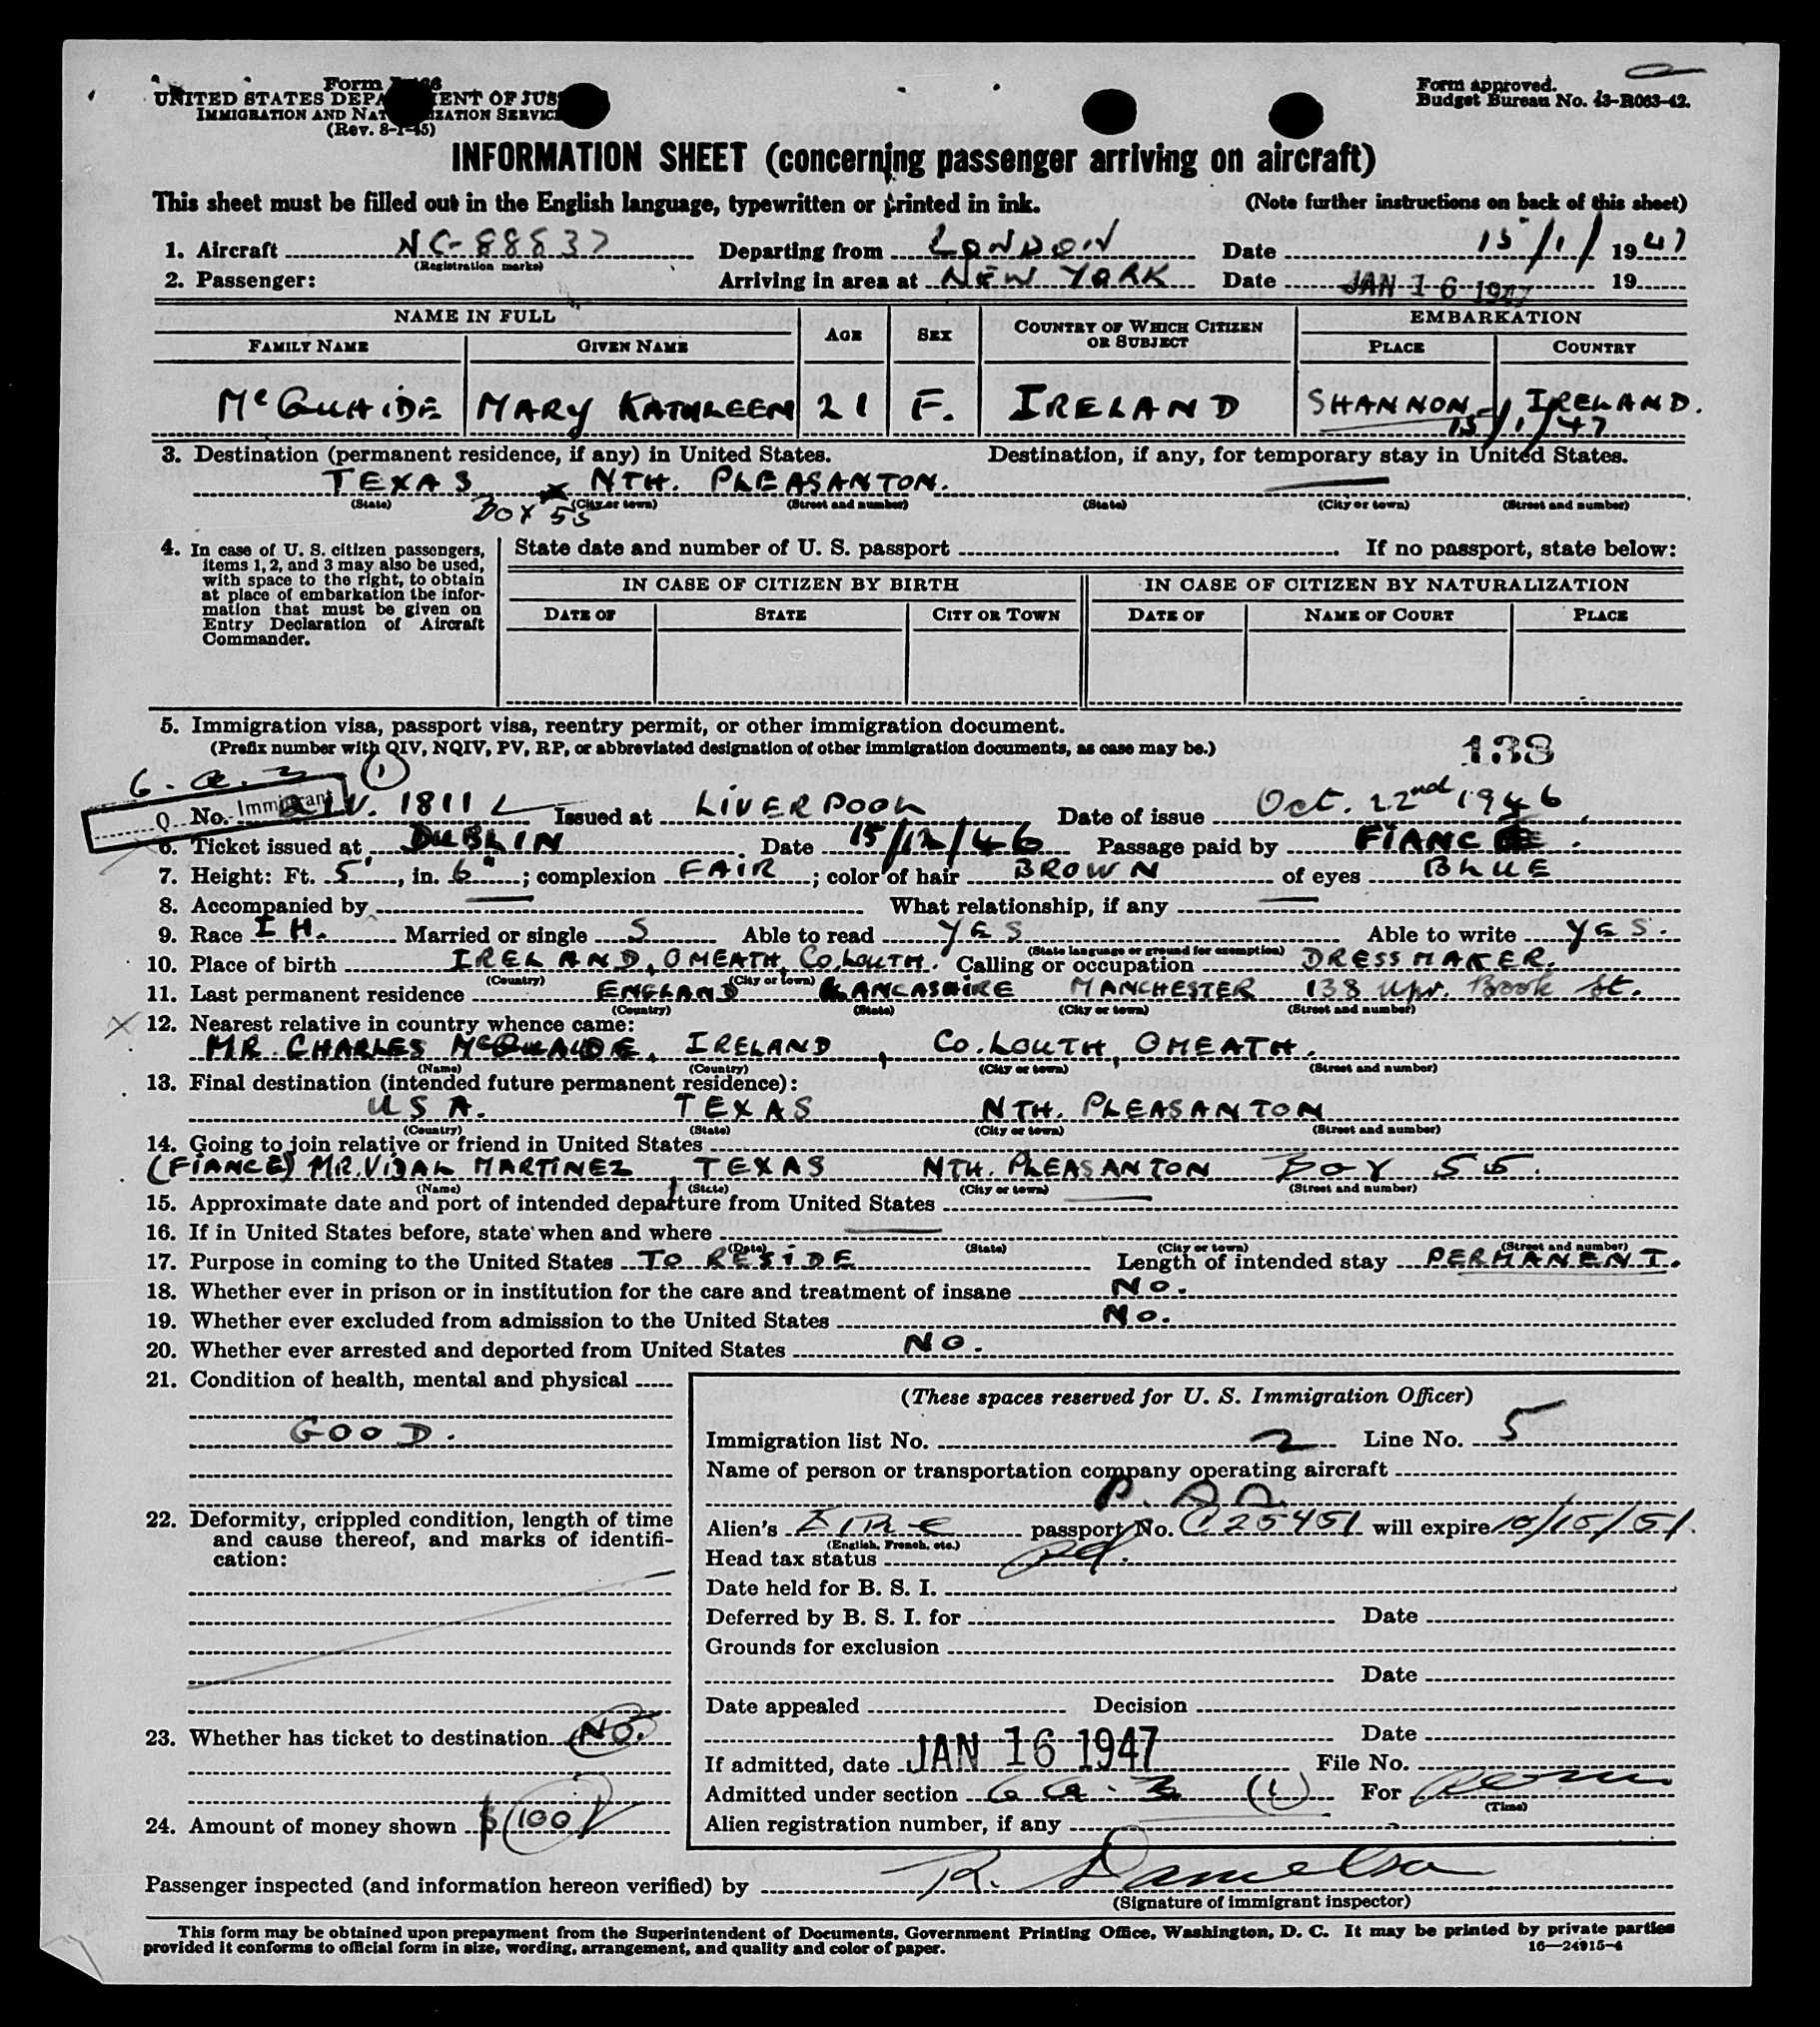 Form
UNITED STATES DEPA MENT OF JUS
IMMIGRATION AND NAT IZATION SERVIC
(Rev. 8-1-45)
Form approved.
Budget Bureau No. 43-R063-42.
INFORMATION SHEET (concerning passenger arriving on aircraft)
This sheet must be filled out in the English language, typewritten or printed in ink. (Note further instructions on back of this sheet)
1. Aircraft NC-88837 Departing from LONDON Date 15/1/ 1947
(Registration marks)
2. Passenger: Arriving in area at NEW YORK Date JAN 16 1947 19
NAME IN FULL AGE SEX COUNTRY OF WHICH CITIZEN OR SUBJECT EMBARKATION
FAMILY NAME GIVEN NAME PLACE COUNTRY
McQUAIDE MARY KATHLEEN 21 F. IRELAND SHANNON IRELAND.
15/1/47
3. Destination (permanent residence, if any) in United States. Destination, if any, for temporary stay in United States.
TEXAS NTH. PLEASANTON.
(State) (City or town) (Street and number) (State) (City or town) (Street and number)
Box 55
4. In case of U. S. citizen passengers, items 1, 2, and 3 may also be used, with space to the right, to obtain at place of embarkation the information that must be given on Entry Declaration of Aircraft Commander.
State date and number of U. S. passport If no passport, state below:
IN CASE OF CITIZEN BY BIRTH IN CASE OF CITIZEN BY NATURALIZATION
DATE OF STATE CITY OR TOWN DATE OF NAME OF COURT PLACE
5. Immigration visa, passport visa, reentry permit, or other immigration document.
(Prefix number with QIV, NQIV, PV, RP, or abbreviated designation of other immigration documents, as case may be.)
138
6. a. 3 (1)
Q Immigrant
No. QIV. 1811 L Issued at LIVERPOOL Date of issue Oct. 22nd 1946
6. Ticket issued at DUBLIN Date 15/12/46 Passage paid by FIANCE.
7. Height: Ft. 5', in. 6"; complexion FAIR; color of hair BROWN of eyes BLUE
8. Accompanied by What relationship, if any
9. Race IH. Married or single S Able to read YES Able to write YES.
(State language or ground for exemption)
10. Place of birth IRELAND, OMEATH, Co. LOUTH. Calling or occupation DRESSMAKER.
(Country) (City or town)
11. Last permanent residence ENGLAND LANCASHIRE MANCHESTER 138 Upr. Brook St.
(Country) (State) (City or town) (Street and number)
12. Nearest relative in country whence came:
MR. CHARLES McQUAIDE, IRELAND, Co. LOUTH, OMEATH.
(Name) (Country) (City or town) (Street and number)
13. Final destination (intended future permanent residence):
USA. TEXAS NTH. PLEASANTON
(Country) (State) (City or town) (Street and number)
14. Going to join relative or friend in United States
(FIANCE) MR. VIDAL MARTINEZ TEXAS NTH. PLEASANTON Box 55.
(Name) (State) (City or town) (Street and number)
15. Approximate date and port of intended departure from United States
16. If in United States before, state when and where
(Date) (State) (City or town) (Street and number)
17. Purpose in coming to the United States TO RESIDE Length of intended stay PERMANENT.
18. Whether ever in prison or in institution for the care and treatment of insane No.
19. Whether ever excluded from admission to the United States No.
20. Whether ever arrested and deported from United States NO.
21. Condition of health, mental and physical
GOOD.
22. Deformity, crippled condition, length of time and cause thereof, and marks of identification:
23. Whether has ticket to destination NO.
24. Amount of money shown $100
(These spaces reserved for U. S. Immigration Officer)
Immigration list No. 2 Line No. 5
Name of person or transportation company operating aircraft
P. A A.
Alien's EIRE passport No. C25451 will expire 10/15/51.
(English, French, etc.)
Head tax status pd.
Date held for B. S. I.
Deferred by B. S. I. for Date
Grounds for exclusion
Date
Date appealed Decision
Date
If admitted, date JAN 16 1947 File No.
Admitted under section 6 a-3 (1) For Perm
(Time)
Alien registration number, if any
Passenger inspected (and information hereon verified) by R. Danielson
(Signature of immigrant inspector)
This form may be obtained upon prepayment from the Superintendent of Documents, Government Printing Office, Washington, D. C. It may be printed by private parties
provided it conforms to official form in size, wording, arrangement, and quality and color of paper.
16—24915-4